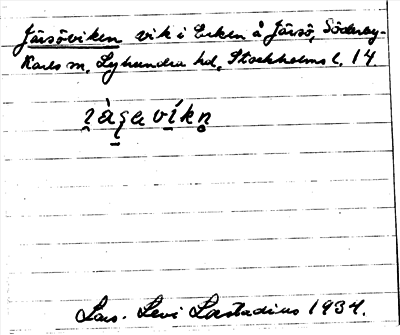 Järsöviken vik i Erken å Järsö, Söderby-
Karls sn, Lyhundra hd, Stockholms l. 14
i̯ày̨a víkn̥
Lars-Levi Læstadius 1934.